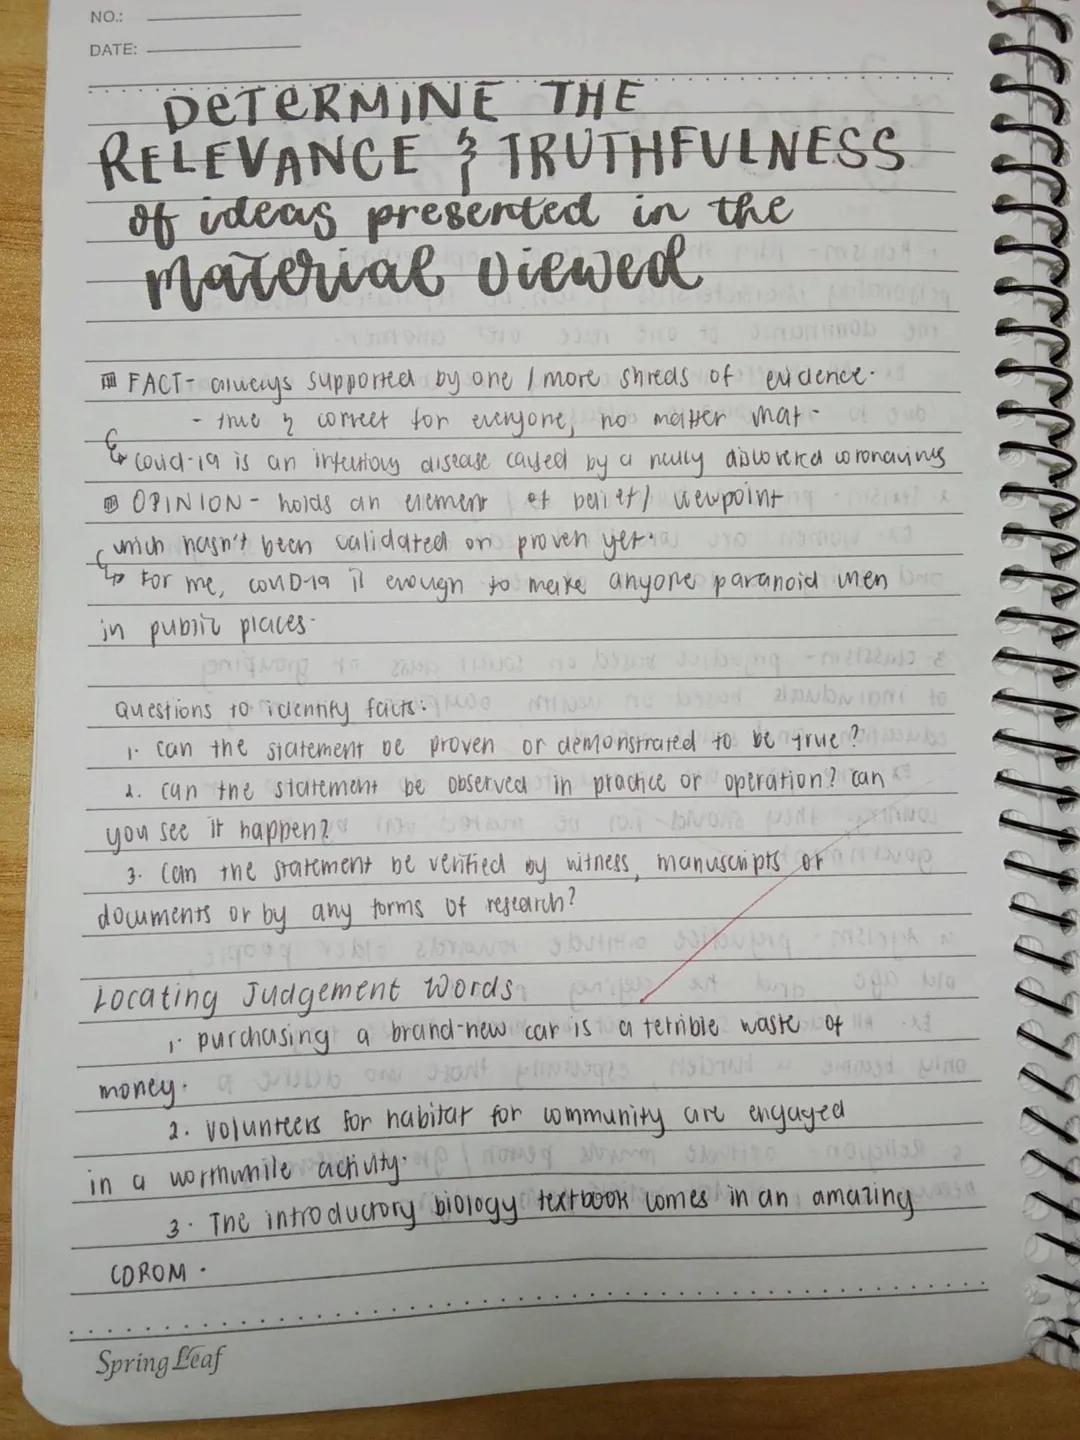 NO.:
DATE:
DETERMINE THE
RELEVANCE & TRUTHFULNESS
of ideas presented in the
Material viewed
FACT- always supported by one / more shreds of evidence.
- true & correct for everyone, no matter what-
covid-19 is an infectious disease caused by a newly discovered coronavirus
OPINION - holds an element of belief / viewpoint
which hasn't been validated or proven yet.
For me, covID-19 is enough to make anyone paranoid when
in public places.
Questions to identify facts:
1. can the statement be proven or demonstrated to be true?
2. can the statement be observed in practice or operation? can
you see it happen?
3. Can the statement be verified by witness, manuscripts or
documents or by any forms of research?
Locating Judgement Words
1. purchasing a brand-new car is a terrible waste of
money.
2. volunteers for habitat for community are engaged
in a worthwhile activity.
3. The introductory biology textbook comes in an amazing
CDROM.
Spring Leaf